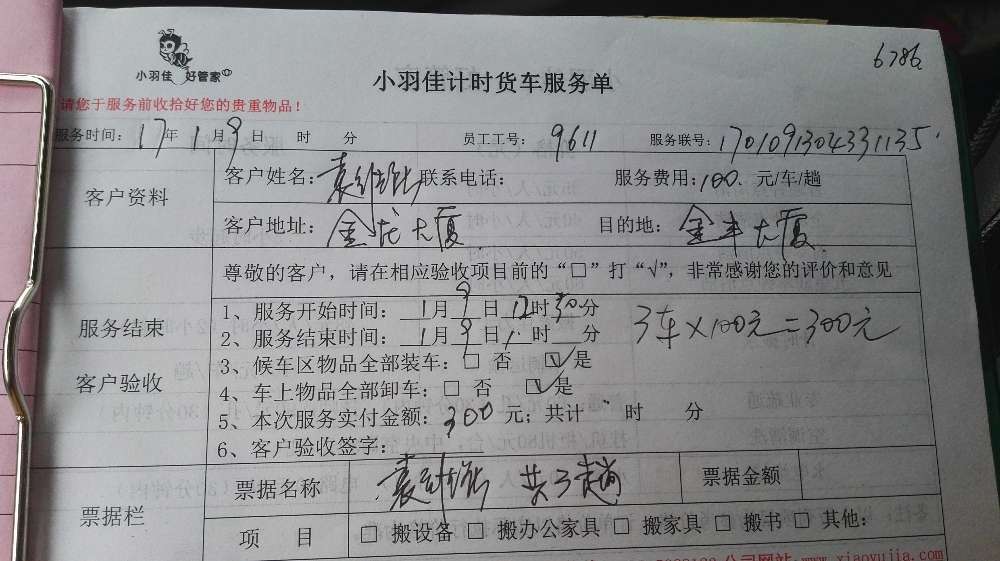 6786
小羽佳 好管家
小羽佳计时货车服务单
请您于服务前收拾好您的贵重物品！
服务时间：17年1月9日 时 分 员工工号：9611 服务联号：1701091304331135
客户资料
客户姓名： 联系电话： 服务费用：100 元/车/趟
客户地址：金龙大厦 目的地：金丰大厦
服务结束
客户验收
尊敬的客户，请在相应验收项目前的“□”打“√”，非常感谢您的评价和意见
1、服务开始时间：1月9日12时30分
2、服务结束时间：1月9日1时 分
3车×100元=300元
3、候车区物品全部装车：□ 否 ☑是
4、车上物品全部卸车：□ 否 ☑是
5、本次服务实付金额：300元；共计 时 分
6、客户验收签字：
票据栏
票据名称 共3趟 票据金额
项 目 □ 搬设备 □ 搬办公家具 □ 搬家具 □ 搬书 □ 其他：
公司网站:www.xiaoyujia.com